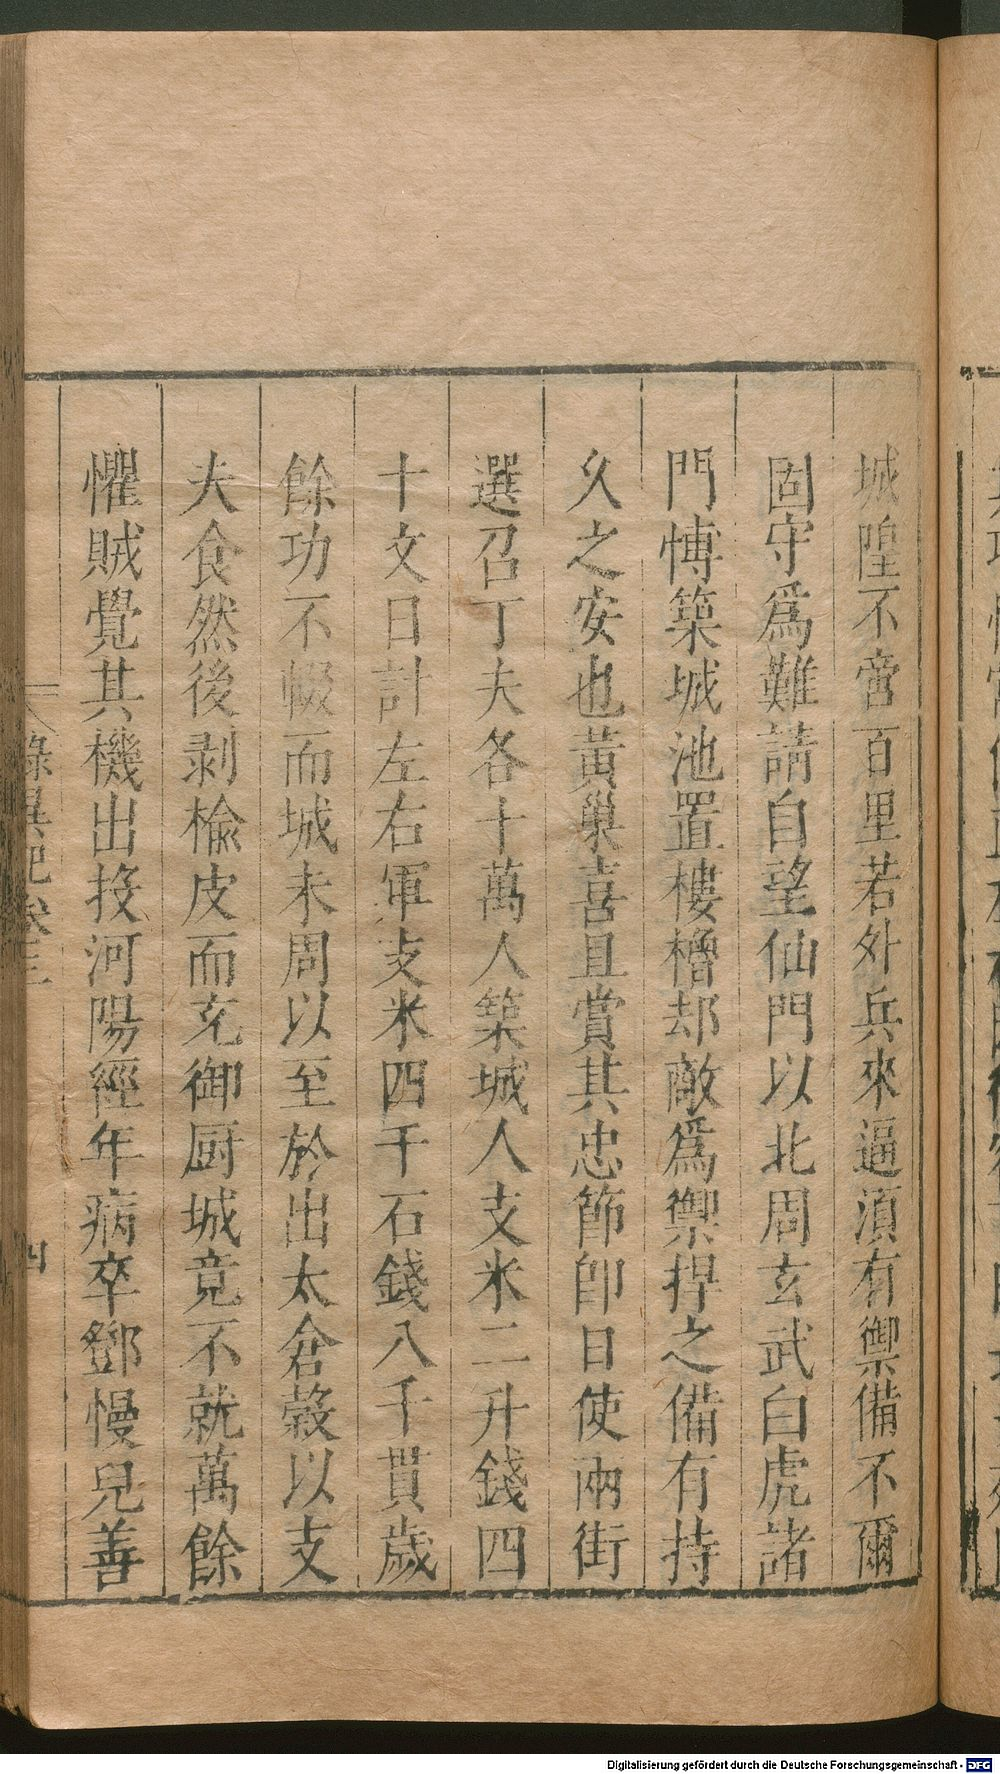 城隍不啻百里若外兵來逼須有禦備不爾
固守爲難請自望仙門以北周玄武白虎諸
門博築城池置樓櫓却敵爲禦捍之備有持
久之安也黃巢喜且賞其忠節卽日使兩街
選召丁夫各十萬人築城人支米二升錢四
十文日計左右軍支米四千石錢八千貫歲
餘功不輟而城未周以至於出太倉穀以支
夫食然後剥榆皮而充御厨城竟不就萬餘
懼賊覺其機出投河陽經年病卒鄧慢兒善
錄異記卷三
四
Digitalisierung gefördert durch die Deutsche Forschungsgemeinschaft - DFG